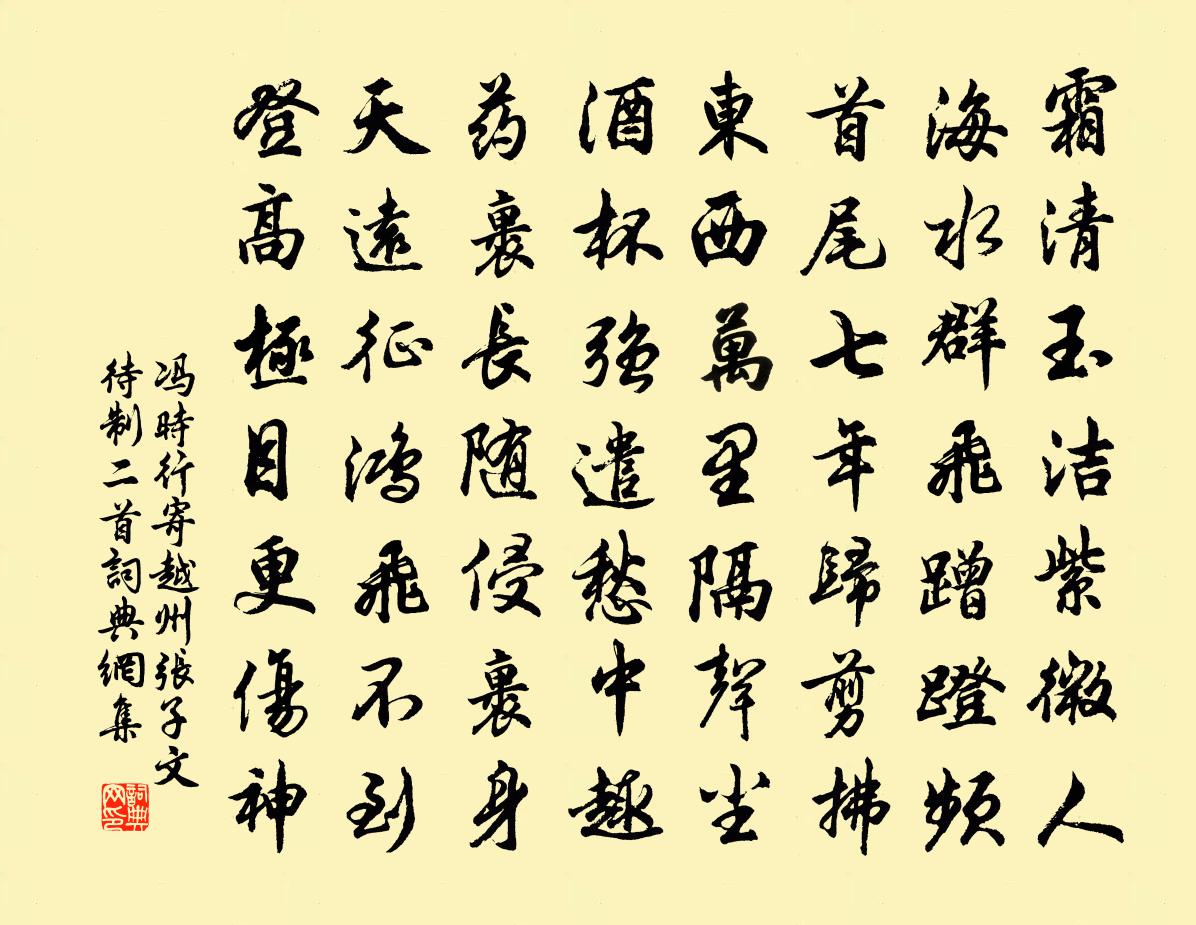 霜清玉洁紫微人
海水群飛蹭蹬頻
首尾七年歸剪拂
東西萬里隔聲尘
酒杯強遣愁中趣
药裹長随侵裹身
天遠征鴻飛不到
登高極目更傷神
冯時行寄越州張子文
待制二首詞典網集
詞典网印